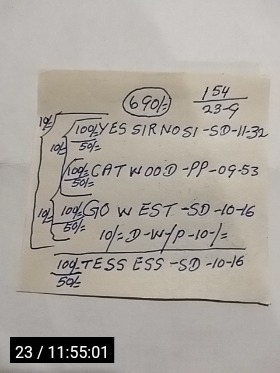 690/=
154
23-9
10/-
100/- YES SIR NO SI - SD - 11-32
50/-
10/-
100/- CAT WOOD - PP - 09-53
50/-
10/-
100/- GO WEST - SD - 10-16
50/-
10/= D-W/P-10-/=
100/- TESS ESS - SD - 10-16
50/-
23 / 11:55:01